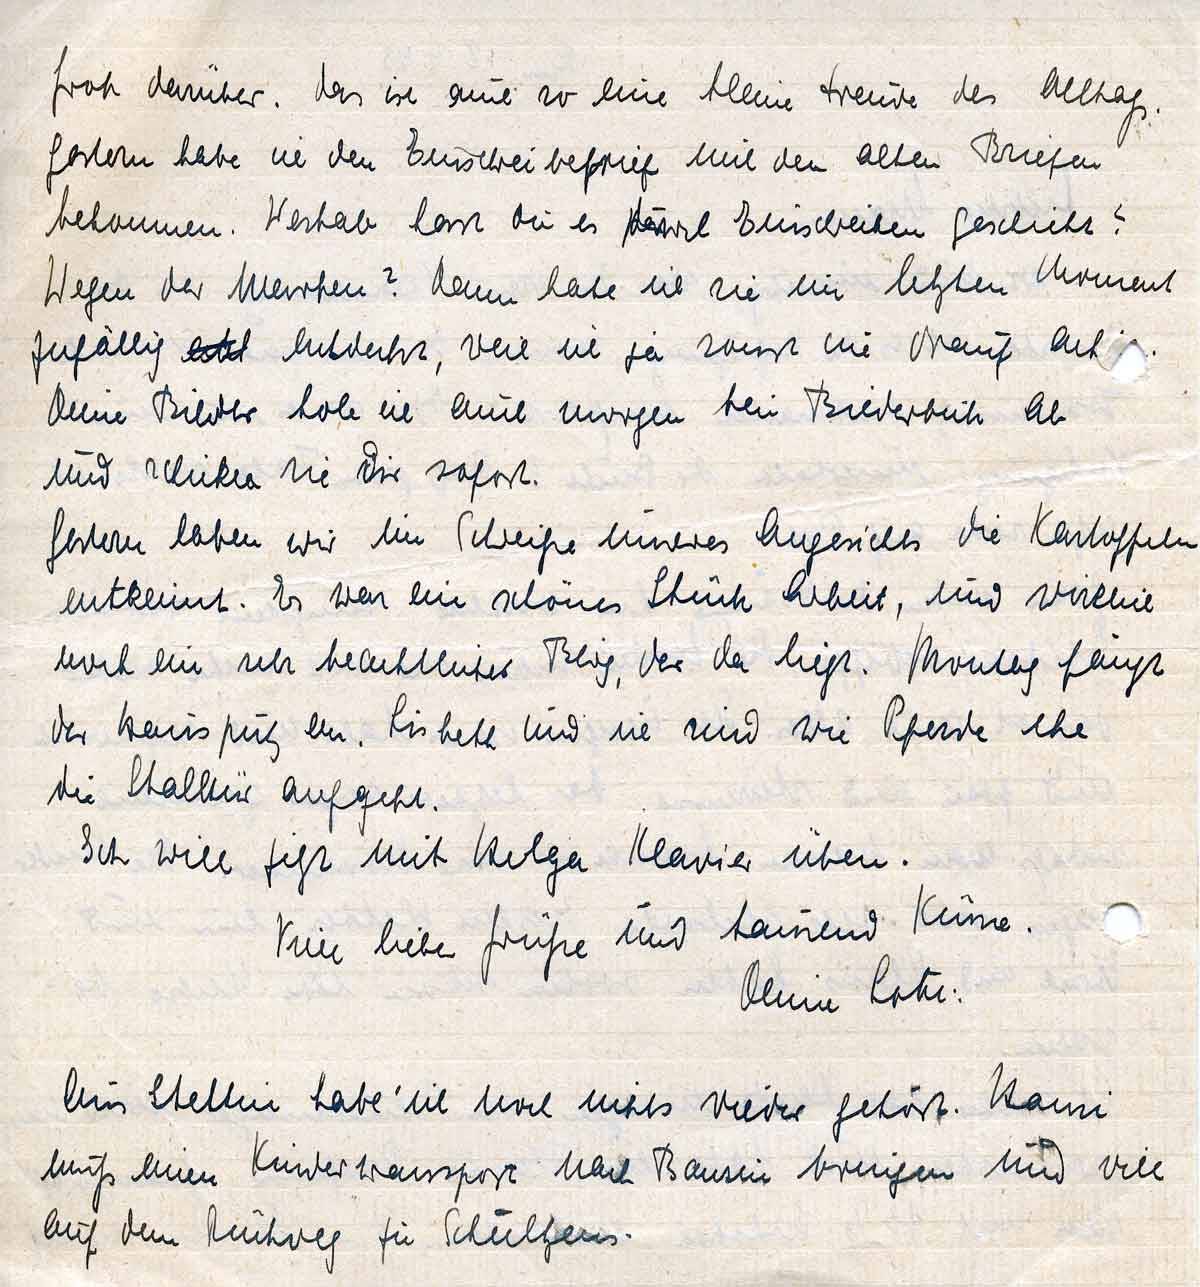 froh darüber. Das ist auch so eine kleine Freude des Alltags.
Gestern habe ich den Einschreibebrief mit den alten Briefen
bekommen. Weshalb hast Du es durch Einschreiben geschickt?
Wegen der Marken? Dann habe ich sie im letzten Moment
zufällig entdeckt, weil ich ja sonst nie drauf acht
Deine Bilder hole ich auch morgen bei Biederbick ab
und schicke sie Dir sofort.
Gestern haben wir im Schweiße unseres Angesichts die Kartoffeln
entkeimt. Es war ein schönes Stück Arbeit, und wirklich
noch ein sehr beachtlicher Berg, der da liegt. Montag fängt
der Hausputz an. Lisbeth und ich sind wie Pferde ehe
die Stalltür aufgeht.
Ich will jetzt mit Helga Klavier üben.
Viele liebe Grüße und tausend Küsse.
Deine Lotte.
Aus Stettin habe ich noch nichts wieder gehört. Hanni
muß einen Kindertransport nach Bansin bringen und will
auf dem Rückweg zu Schültzens.